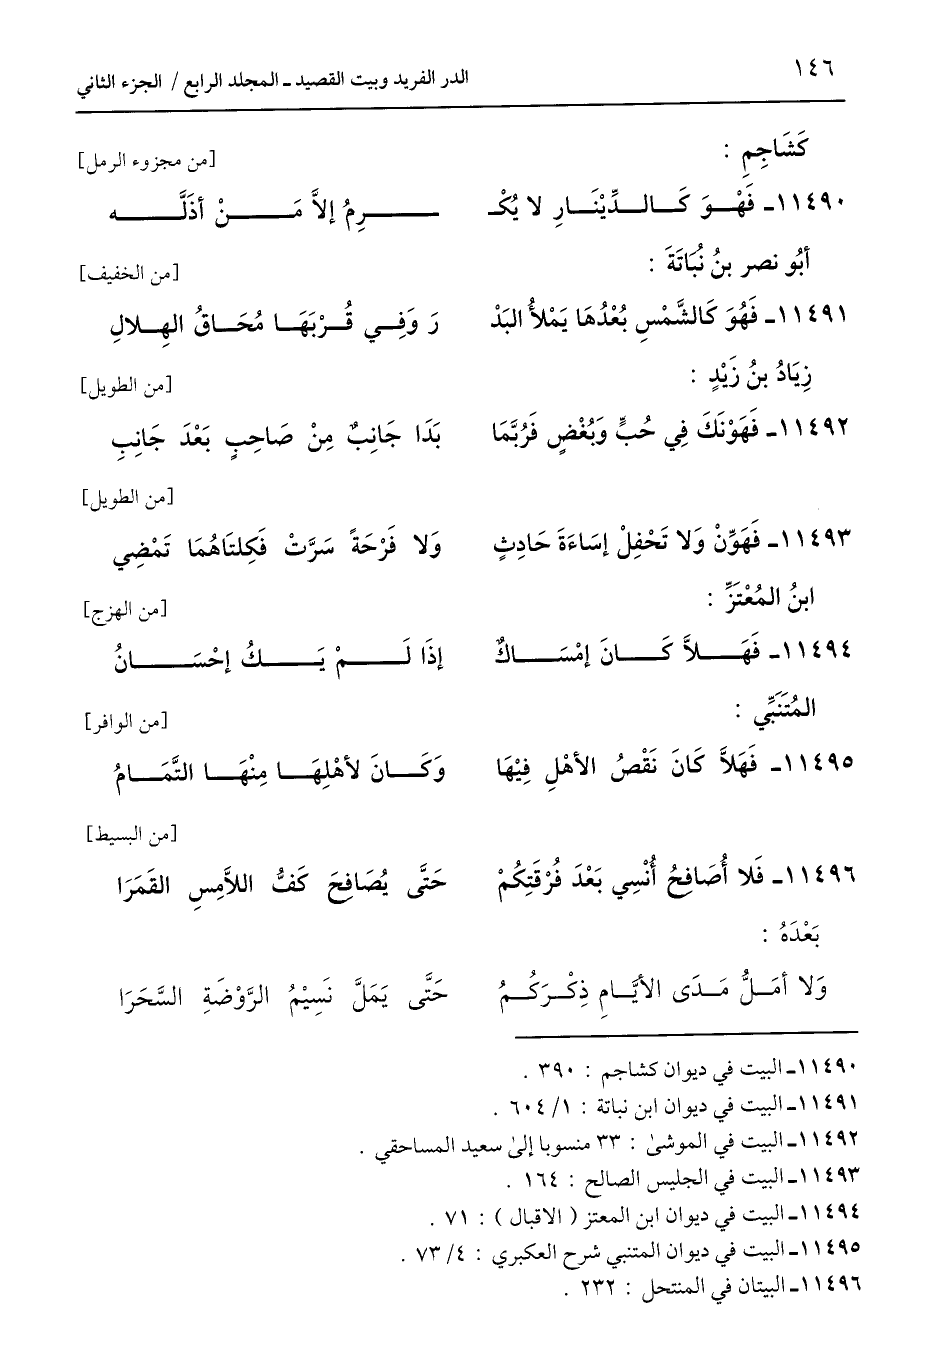 ١٤٦ الدر الفريد وبيت القصيد ـ المجلد الرابع / الجزء الثاني
كَشَاجِمِ : [من مجزوء الرمل]
١١٤٩٠ـ فَهْوَ كَالدِّيْنَارِ لا يُكْـ ـرِمُ إلاَّ مَنْ أذَلَّه
أبُو نصر بنُ نُبَاتَةَ : [من الخفيف]
١١٤٩١ـ فَهُوَ كَالشَّمْسِ بُعْدُهَا يَمْلأُ البَدْ رَ وَفِي قُرْبَهَا مُحَاقُ الهِلالِ
زِيَادُ بنُ زَيْدٍ : [من الطويل]
١١٤٩٢ـ فَهَوْنَكَ فِي حُبٍّ وَبُغْضٍ فَرُبَّمَا بَدَا جَانِبٌ مِنْ صَاحِبٍ بَعْدَ جَانِبِ
[من الطويل]
١١٤٩٣ـ فَهَوِّنْ وَلا تَحْفِلْ إسَاءَةَ حَادِثٍ وَلا فَرْحَةً سَرَّتْ فَكِلتَاهُمَا تَمْضِي
ابنُ المُعْتَزِّ : [من الهزج]
١١٤٩٤ـ فَهَلاَّ كَانَ إمْسَاكٌ إذَا لَمْ يَكُ إحْسَانُ
المُتَنَبِّي : [من الوافر]
١١٤٩٥ـ فَهَلاَّ كَانَ نَقْصُ الأهْلِ فِيْهَا وَكَانَ لأهْلِهَا مِنْهَا التَّمَامُ
[من البسيط]
١١٤٩٦ـ فَلا أُصَافِحُ أُنْسِي بَعْدَ فُرْقَتِكُمْ حَتَّى يُصَافِحَ كَفُّ اللاَّمِسِ القَمَرَا
بَعْدَهُ :
وَلا أمَلُّ مَدَى الأيَّامِ ذِكْرَكُمُ حَتَّى يَمَلَّ نَسِيْمُ الرَّوْضَةِ السَّحَرَا
١١٤٩٠ـ البيت في ديوان كشاجم : ٣٩٠ .
١١٤٩١ـ البيت في ديوان ابن نباتة : ١/ ٦٠٤ .
١١٤٩٢ـ البيت في الموشىٰ : ٣٣ منسوبا إلىٰ سعيد المساحقي .
١١٤٩٣ـ البيت في الجليس الصالح : ١٦٤ .
١١٤٩٤ـ البيت في ديوان ابن المعتز ( الاقبال ) : ٧١ .
١١٤٩٥ـ البيت في ديوان المتنبي شرح العكبري : ٤/ ٧٣ .
١١٤٩٦ـ البيتان في المنتحل : ٢٣٢ .